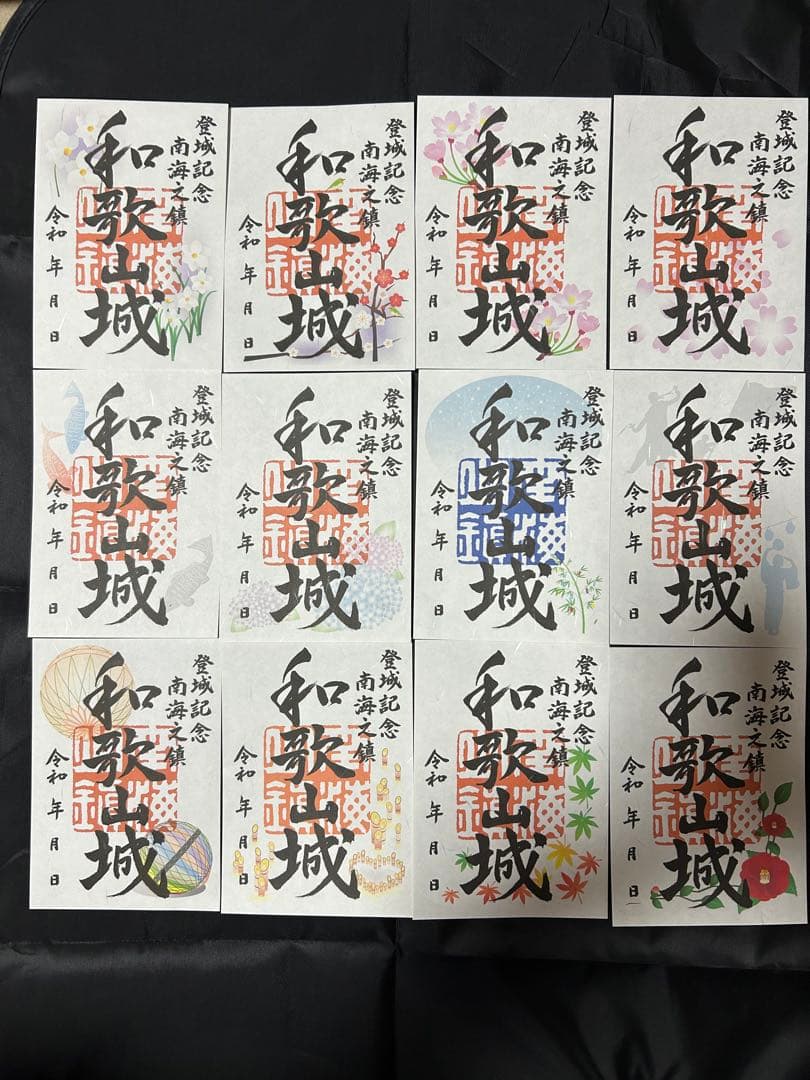 登城記念
南海之鎮
和歌山城
令和 年 月 日
登城記念
南海之鎮
和歌山城
令和 年 月 日
登城記念
南海之鎮
和歌山城
令和 年 月 日
登城記念
南海之鎮
和歌山城
令和 年 月 日
登城記念
南海之鎮
和歌山城
令和 年 月 日
登城記念
南海之鎮
和歌山城
令和 年 月 日
登城記念
南海之鎮
和歌山城
令和 年 月 日
登城記念
南海之鎮
和歌山城
令和 年 月 日
登城記念
南海之鎮
和歌山城
令和 年 月 日
登城記念
南海之鎮
和歌山城
令和 年 月 日
登城記念
南海之鎮
和歌山城
令和 年 月 日
登城記念
南海之鎮
和歌山城
令和 年 月 日